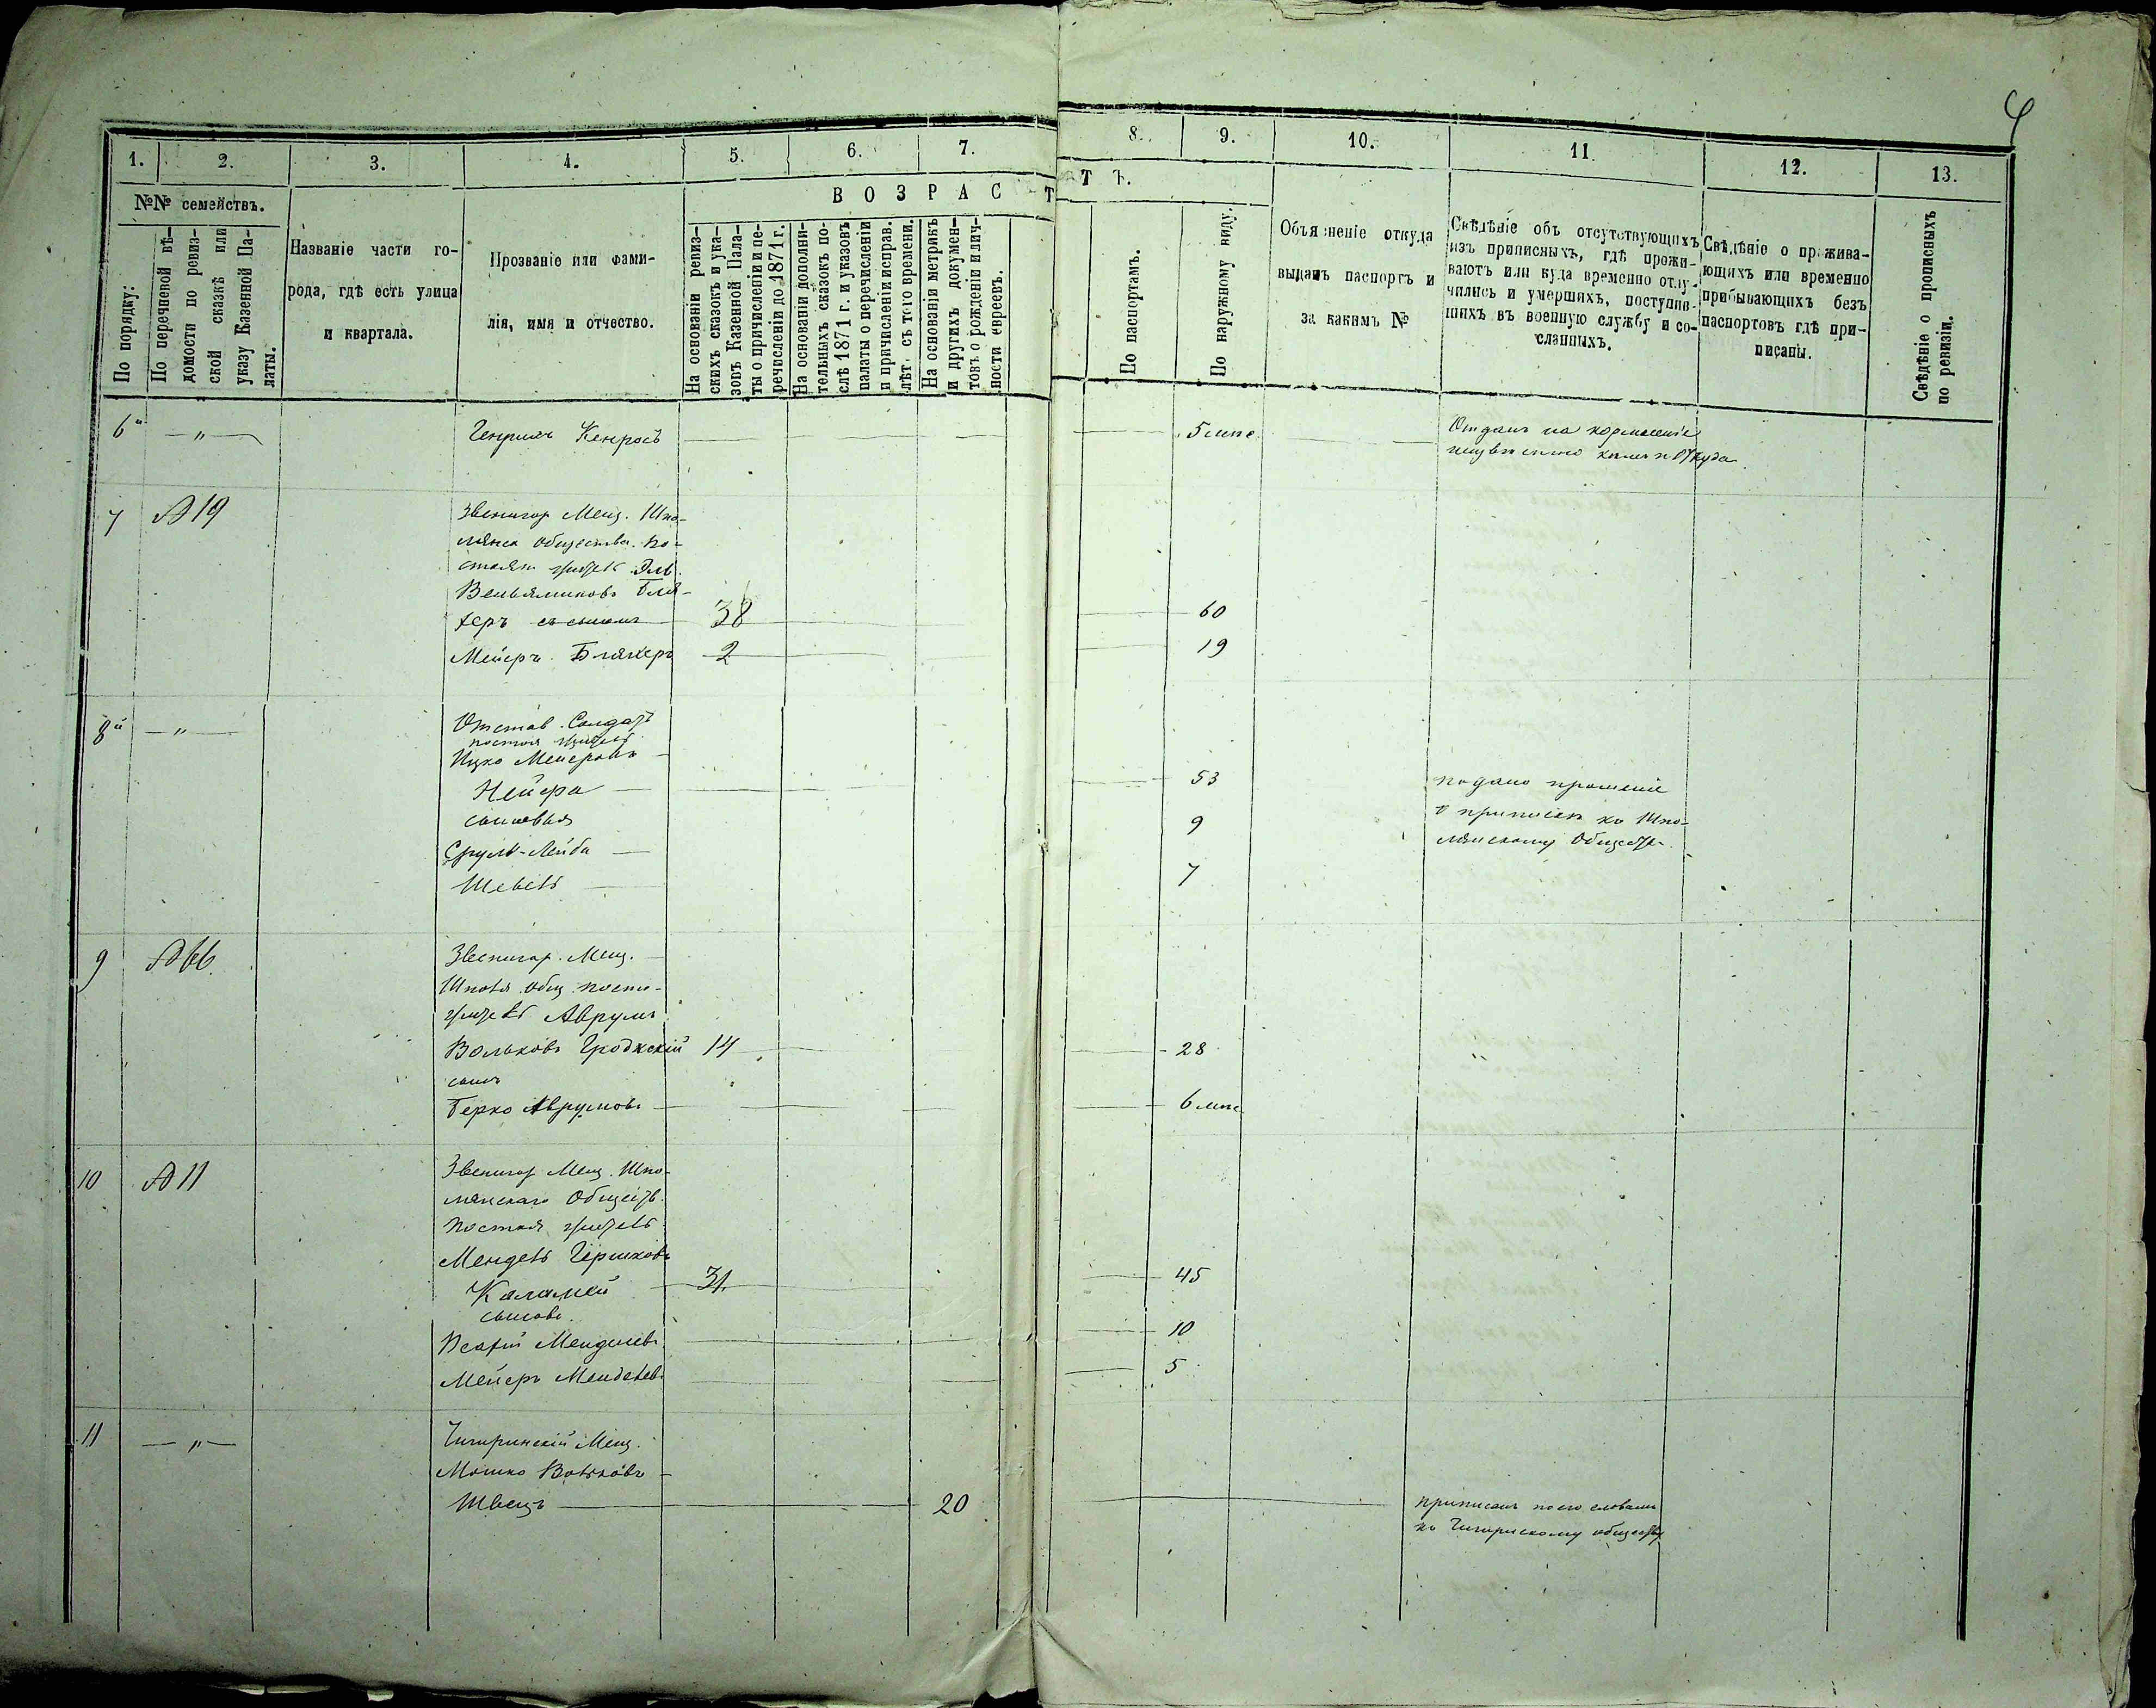 4
1. 2. 3. 4. 5. 6. 7. 8. 9. 10. 11. 12. 13.
№№ семействъ.
ВОЗРАСТЪ.
По порядку:
По перечневой вѣ-
домости по ревиз-
ской сказкѣ или
указу Казенной Па-
латы.
Названіе части го-
рода, гдѣ есть улица
и квартала.
Прозваніе или фами-
лія, имя и отчество.
На основаніи ревиз-
скихъ сказокъ и ука-
зовъ Казенной Пала-
ты о причисленіи и пе-
речисленіи до 1871 г.
На основаніи дополни-
тельныхъ сказокъ по-
слѣ 1871 г. и указовъ
палаты о перечисленіи
и причисленіи исправ.
лѣт. съ того времени.
На основаніи метрикъ
и другихъ докумен-
товъ о рожденіи и лич-
ности евреевъ.
По паспортамъ.
По наружному виду.
Объясненіе откуда
выданъ паспортъ и
за какимъ №
Свѣдѣніе объ отсутствующихъ
изъ приписныхъ, гдѣ прожи-
ваютъ или куда временно отлу-
чились и умершихъ, поступив-
шихъ въ военную службу и со-
сланныхъ.
Свѣдѣніе о прожива-
ющихъ или временно
прибывающихъ безъ
паспортовъ гдѣ при-
писаны.
Свѣдѣніе о прописныхъ
по ревизіи.
6й — " — 5 мѣс. Отданъ на кормленіе
7 №19 Звенигор Мещ. Шпо-
лянск общества. по-
стоян жител
Веньяминовъ Бля-
херъ съ сыномъ 38 60
Мейеръ Бляхеръ 2 19
8й — " — Отстав. Солдатъ
постоя жител
Ицко Мейеровъ
Нейера 53 подано прошеніе
сыновья о припискѣ къ Шпо-
Сруль-Лейба 9 лянскому Обществ.
Шевель 7
9 №66 Звенигор. Мещ.
Шполя общ постоя-
жител Аврумъ
Вольковъ Гродскій 14 28
сынъ
Берко Аврумовъ 6 мѣс
10 №11 Звенигор Мещ. Шпо-
лянскаго Обществ.
Постоя жител
Мендель Гершковъ
31 45
сыновь.
Менделевъ 10
Мейеръ Менделев. 5
11 — " — Чигиринскій Мещ.
Мошко Вольковъ
Швецъ 20 приписанъ по его словамъ
къ Чигирискому обществу